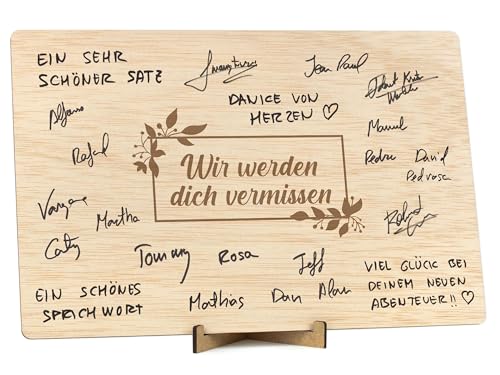 EIN SEHR
SCHÖNER SATZ
Jean Paul
DANICE VON
HERZEN ♡
Alfonso
Rafael
Manuel
Pedro
David
Pedrosa
Wir werden
dich vermissen
Martha
Robert
Caty
Tommy
Rosa
Jeff
EIN SCHÖNES
SPRICHWORT
Matthias
Dan
Alan
VIEL GLÜCK BEI
DEINEM NEUEN
ABENTEUER!! ♡